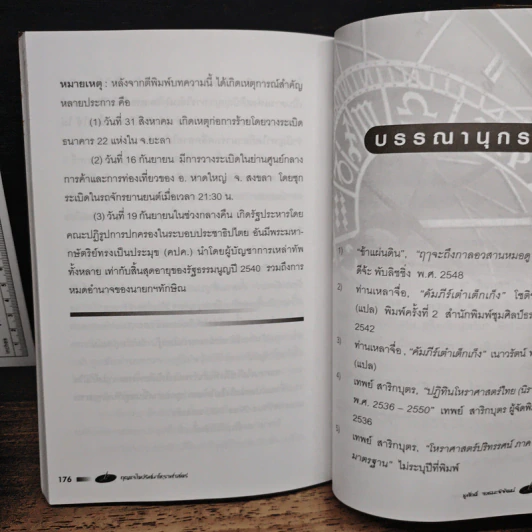 หมายเหตุ : หลังจากตีพิมพ์บทความนี้ ได้เกิดเหตุการณ์สำคัญ
หลายประการ คือ
(1) วันที่ 31 สิงหาคม เกิดเหตุก่อการร้ายโดยวางระเบิด
ธนาคาร 22 แห่งใน จ.ยะลา
(2) วันที่ 16 กันยายน มีการวางระเบิดในย่านศูนย์กลาง
การค้าและการท่องเที่ยวของ อ. หาดใหญ่ จ. สงขลา โดยซุก
ระเบิดในรถจักรยานยนต์เมื่อเวลา 21:30 น.
(3) วันที่ 19 กันยายนในช่วงกลางคืน เกิดรัฐประหารโดย
คณะปฏิรูปการปกครองในระบอบประชาธิปไตย อันมีพระมหา-
กษัตริย์ทรงเป็นประมุข (คปค.) นำโดยผู้บัญชาการเหล่าทัพ
ทั้งหลาย เท่ากับสิ้นสุดอายุของรัฐธรรมนูญปี 2540 รวมถึงการ
หมดอำนาจของนายกฯทักษิณ
176
บรรณานุกร
1) "ข้าแผ่นดิน", "ฤๅจะถึงกาลอวสานหมอดู
ดีจ๊ะ พับลิชชิ่ง พ.ศ. 2548
2) ท่านเหลาจื่อ, "คัมภีร์เต๋าเต็กเก็ง" โชติ
(แปล) พิมพ์ครั้งที่ 2 สำนักพิมพ์ชุมศิลป์ธร
2542
3) ท่านเหลาจื่อ, "คัมภีร์เต๋าเต็กเก็ง" เนาวรัตน์
(แปล)
4) เทพย์ สาริกบุตร, "ปฏิทินโหราศาสตร์ไทย (นิร
พ.ศ. 2536 – 2550" เทพย์ สาริกบุตร ผู้จัดพิ
2536
5) เทพย์ สาริกบุตร, "โหราศาสตร์ปริทรรศน์ ภาค
มาตรฐาน" ไม่ระบุปีที่พิมพ์